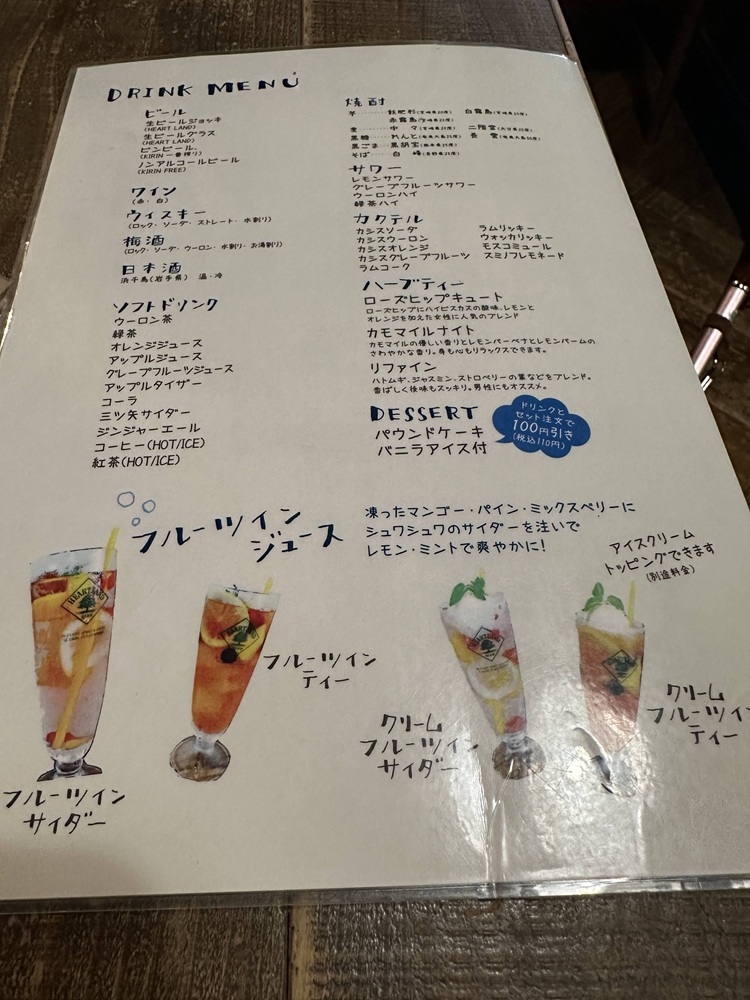 DRINK MENU
ビール
生ビールジョッキ
(HEART LAND)
生ビールグラス
(HEART LAND)
ビンビール、
(KIRIN 一番搾り)
ノンアルコールビール
(KIRIN FREE)
ワイン
(赤・白)
ウィスキー
(ロック・ソーダ・ストレート・水割り)
梅酒
(ロック・ソーダ・ウーロン・水割り・お湯割り)
日本酒
浜千鳥(岩手県) 温・冷
ソフトドリンク
ウーロン茶
緑茶
オレンジジュース
アップルジュース
グレープフルーツジュース
アップルタイザー
コーラ
三ツ矢サイダー
ジンジャーエール
コーヒー(HOT/ICE)
紅茶(HOT/ICE)
焼酎
芋‥‥‥飫肥杉(宮崎県20度) 白霧島(宮崎県20度)
赤霧島(宮崎県20度)
麦‥‥‥中々(宮崎県25度) 二階堂(大分県20度)
黒糖‥‥れんと(奄美大島25度) 長雲(奄美大島30度)
黒ごま‥黒胡宝(熊本県25度)
そば‥‥白峰(長野県25度)
サワー
レモンサワー
グレープフルーツサワー
ウーロンハイ
緑茶ハイ
カクテル
カシスソーダ ラムリッキー
カシスウーロン ウォッカリッキー
カシスオレンジ モスコミュール
カシスグレープフルーツ スミノフレモネード
ラムコーク
ハーブティー
ローズヒップキュート
ローズヒップにハイビスカスの酸味、レモンと
オレンジを加えた女性に人気のブレンド
カモマイルナイト
カモマイルの優しい香りとレモンバーベナとレモンバームの
さわやかな香り。身も心もリラックスできます。
リファイン
ハトムギ、ジャスミン、ストロベリーの葉などをブレンド。
香ばしく後味もスッキリ。男性にもオススメ。
DESSERT
パウンドケーキ
バニラアイス付
ドリンクと
セット注文で
100円引き
(税込110円)
フルーツイン
ジュース
凍ったマンゴー・パイン・ミックスベリーに
シュワシュワのサイダーを注いで
レモン・ミントで爽やかに!
アイスクリーム
トッピングできます
(別途料金)
HEARTLAND
BEER
フルーツイン
サイダー
フルーツイン
ティー
クリーム
フルーツイン
サイダー
クリーム
フルーツイン
ティー